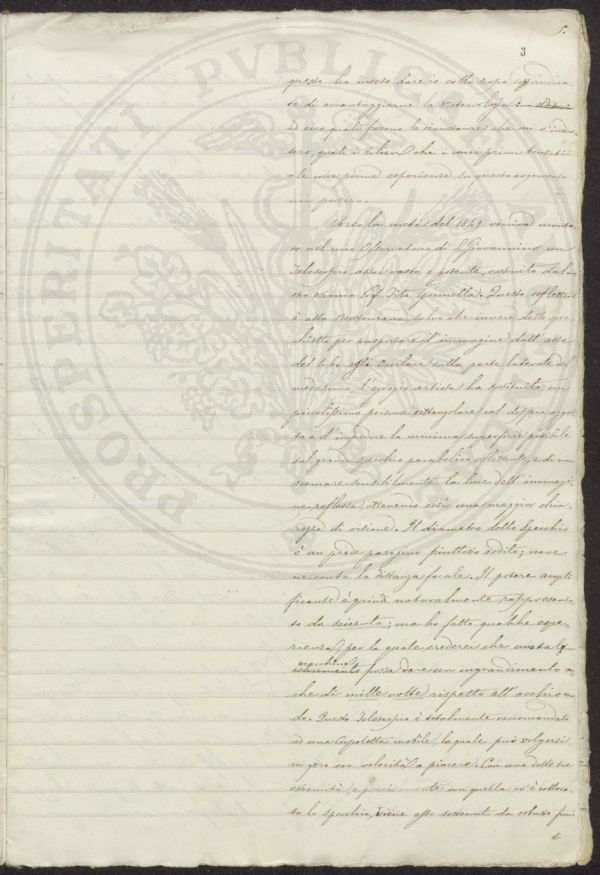 5.
3
questo ho inteso dare io collo scopo
to di avvantaggiarne la Meteorologia:
ed ecco quali furono le circostanze che mi v'indus
sero, quali i rilievi che i miei primi tentativi
e le mie prime esperienze su questo argomento
mi porsero.
Verso la metà del 1849 veniva monta
to nel mio Osservatorio di S. Giovannino un
Telescopio assai vasto e potente, costruito dal no
stro esimio Prof. Tito Gonnella. Questo reflettore
è alla Newtoniana, salvo che invece dello spec
chietto per trasportare l'immagine dall'asse
del tubo all' oculare sulla parte laterale del
medesimo, l'egregio artista ha sostituito un
piccolissimo prisma rettangolare col doppio ogget
to e d'impedire la minima superficie possibile
sul grande specchio parabolico riflettente, e di non
scemare sensibilmente la luce dell'immagi
ne reflessa, ottenendo così una maggior chia
rezza di visione. Il diametro dello Specchio
è un piede parigino piuttosto ardito; nove
ne conta la distanza focale. Il potere ampli
ficante è quindi naturalmente rappresenta
to da seicento; ma ho fatto qualche espe
rienza, per la quale crederei che una tal
macchina
istrumento possa dare un ingrandimento a
che di mille volte rispetto all'occhio nu
do. Questo Telescopio è totalmente raccomandato
ad una Cupoletta mobile, la quale può volgersi
in giro con velocità a piacere. Con una delle sue
estremità, e precisamente con quella ov'è colloca
to lo specchio, viene esso sostenuto da robuste funi